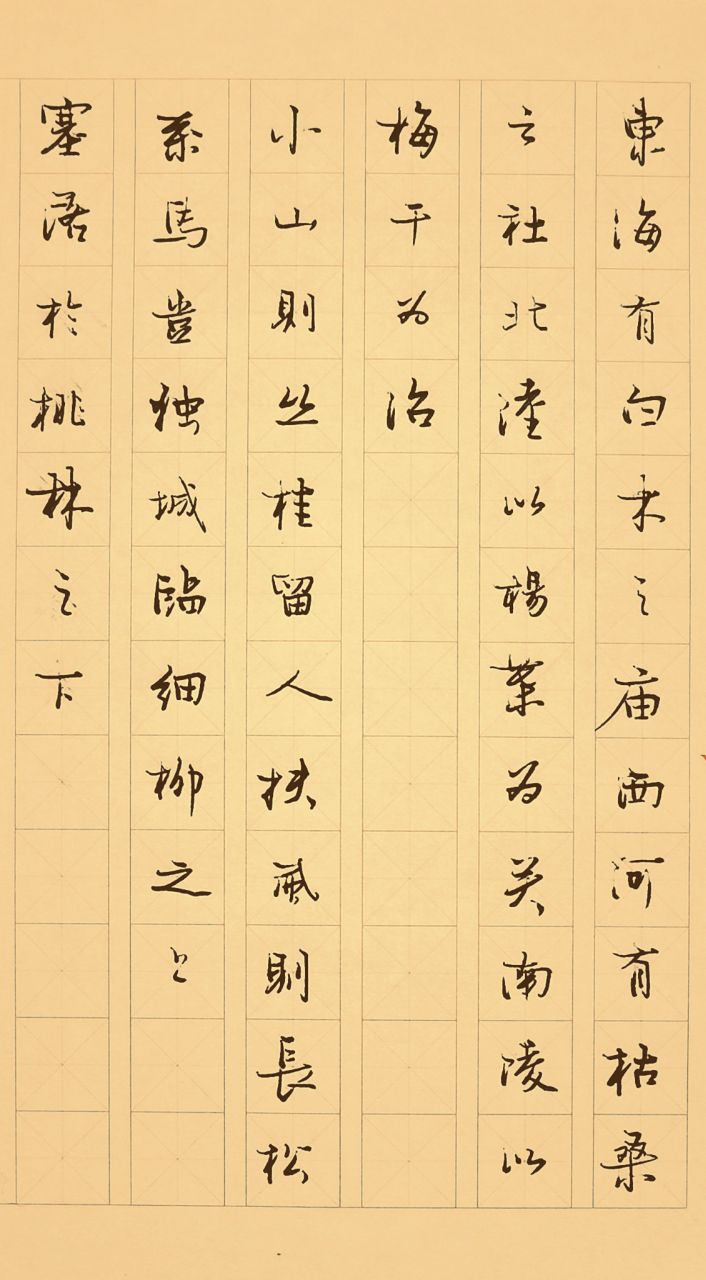 東海有白木之庙西河有枯桑
之社北陸以楊葉为关南陵以
梅干为治
小山則丛桂留人扶風則長松
系馬豈独城臨细柳之上
塞落於桃林之下